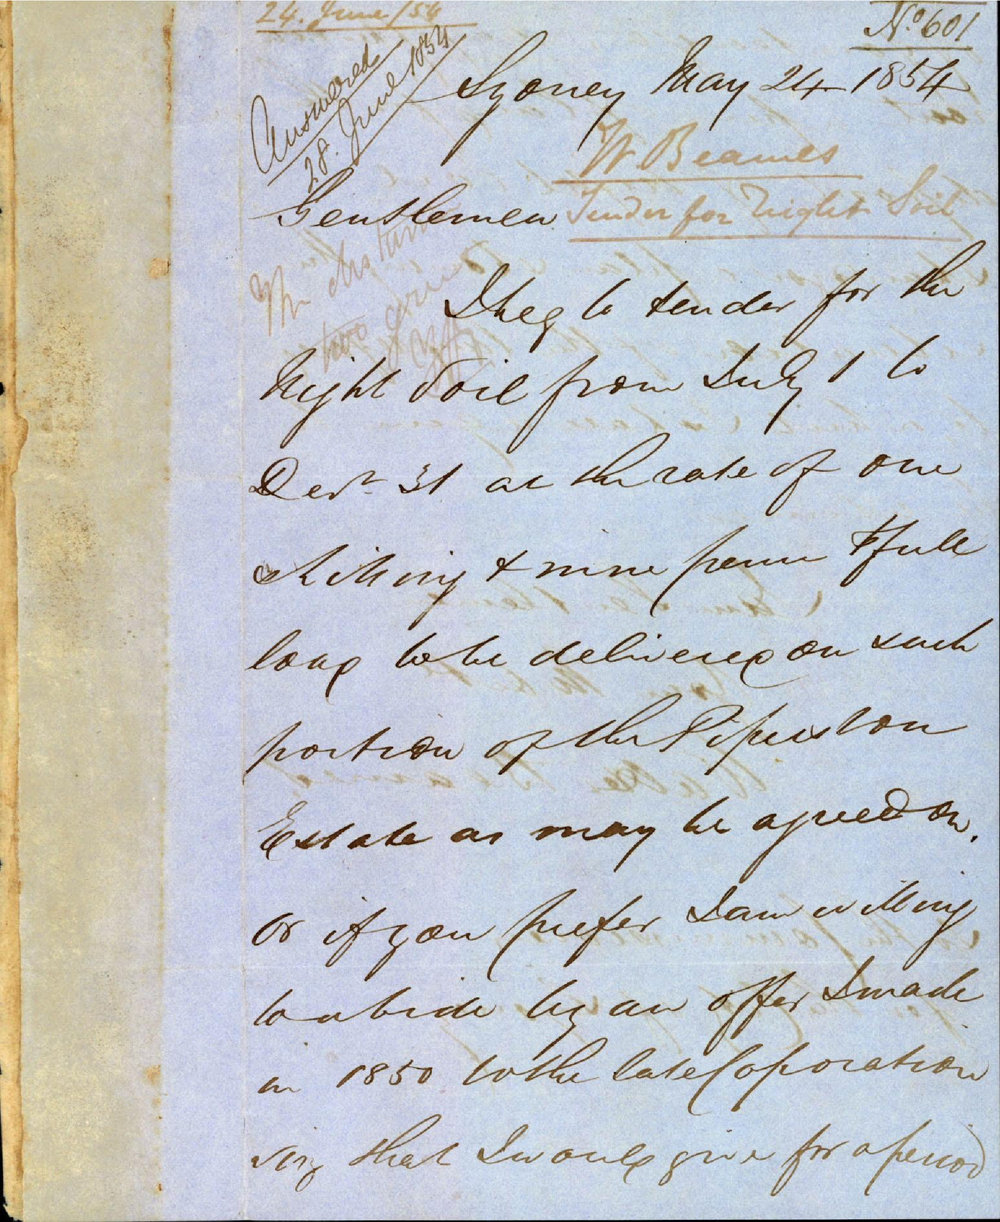 24. June/54
No. 601
Answered
28. June 1854
Sydney May 24 1854
W Beames
Gentlemen
Tender for Night Soil
two
I beg to tender for the
Night Soil from July 1 to
Decr 31 at the rate of one
shilling & nine pence full
load to be delivered on such
portion of the Piperston
Estate as may be agreed on.
or if you prefer I am willing
to abide by an offer I made
in 1850 to the late Corporation
viz that I would give for a period